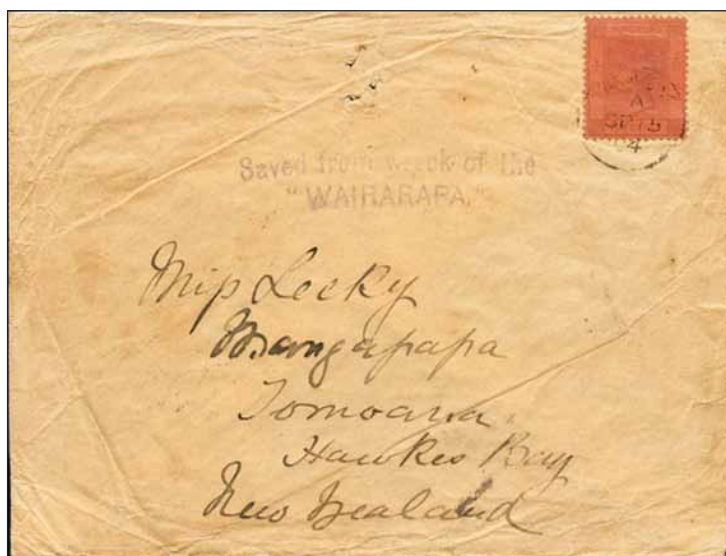 Saved from wreck of the
"WAIRARAPA."
Miss Lecky
Mangapapa
Tomoana
Hawkes Bay
New Zealand
A
SP 15